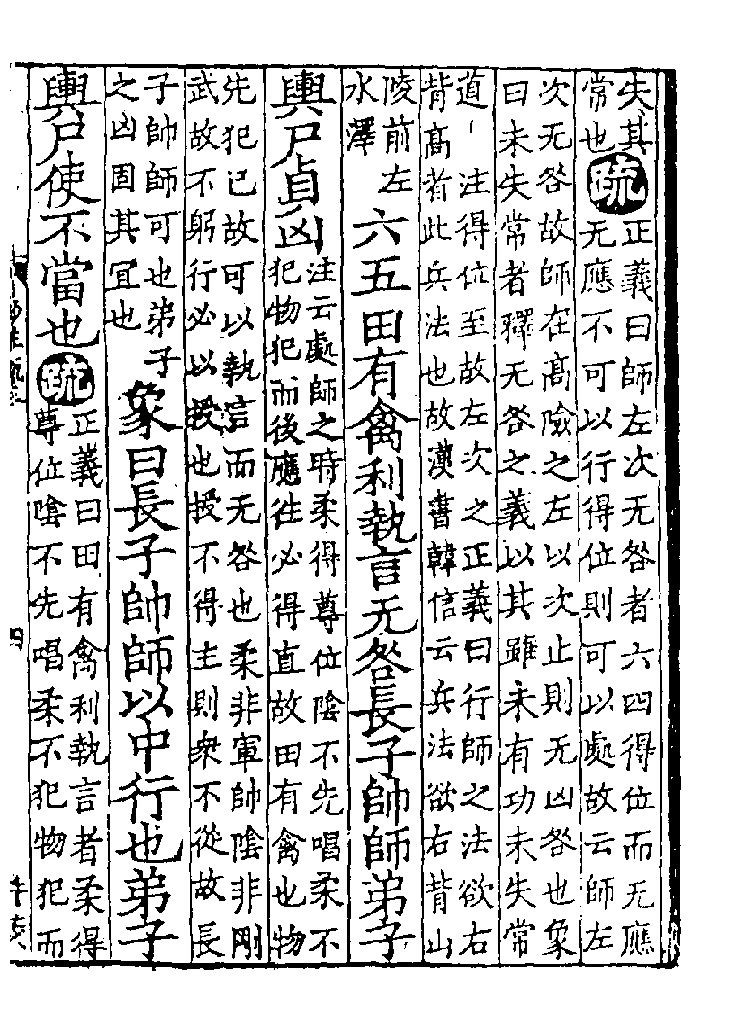 失其
常也疏正義曰師左次无咎者六四得位而无應
无應不可以行得位則可以處故云師左
次无咎故師在高險之左以次止則无凶咎也象
曰未失常者釋无咎之義以其雖未有功未失常
道 注得位至故左次之正義曰行師之法欲右
背高者此兵法也故漢書韓信云兵法欲右背山
陵前左
水澤六五田有禽利執言无咎長子帥師弟子
輿尸貞凶注云處師之時柔得尊位陰不先唱柔不
犯物犯而後應往必得直故田有禽也物
先犯已故可以執言而无咎也柔非軍帥陰非剛
武故不躬行必以授也授不得主則衆不從故長
子帥師可也弟子
之凶固其宜也象曰長子帥師以中行也弟子
輿尸使不當也疏正義曰田有禽利執言者柔得
尊位陰不先唱柔不犯物犯而
四